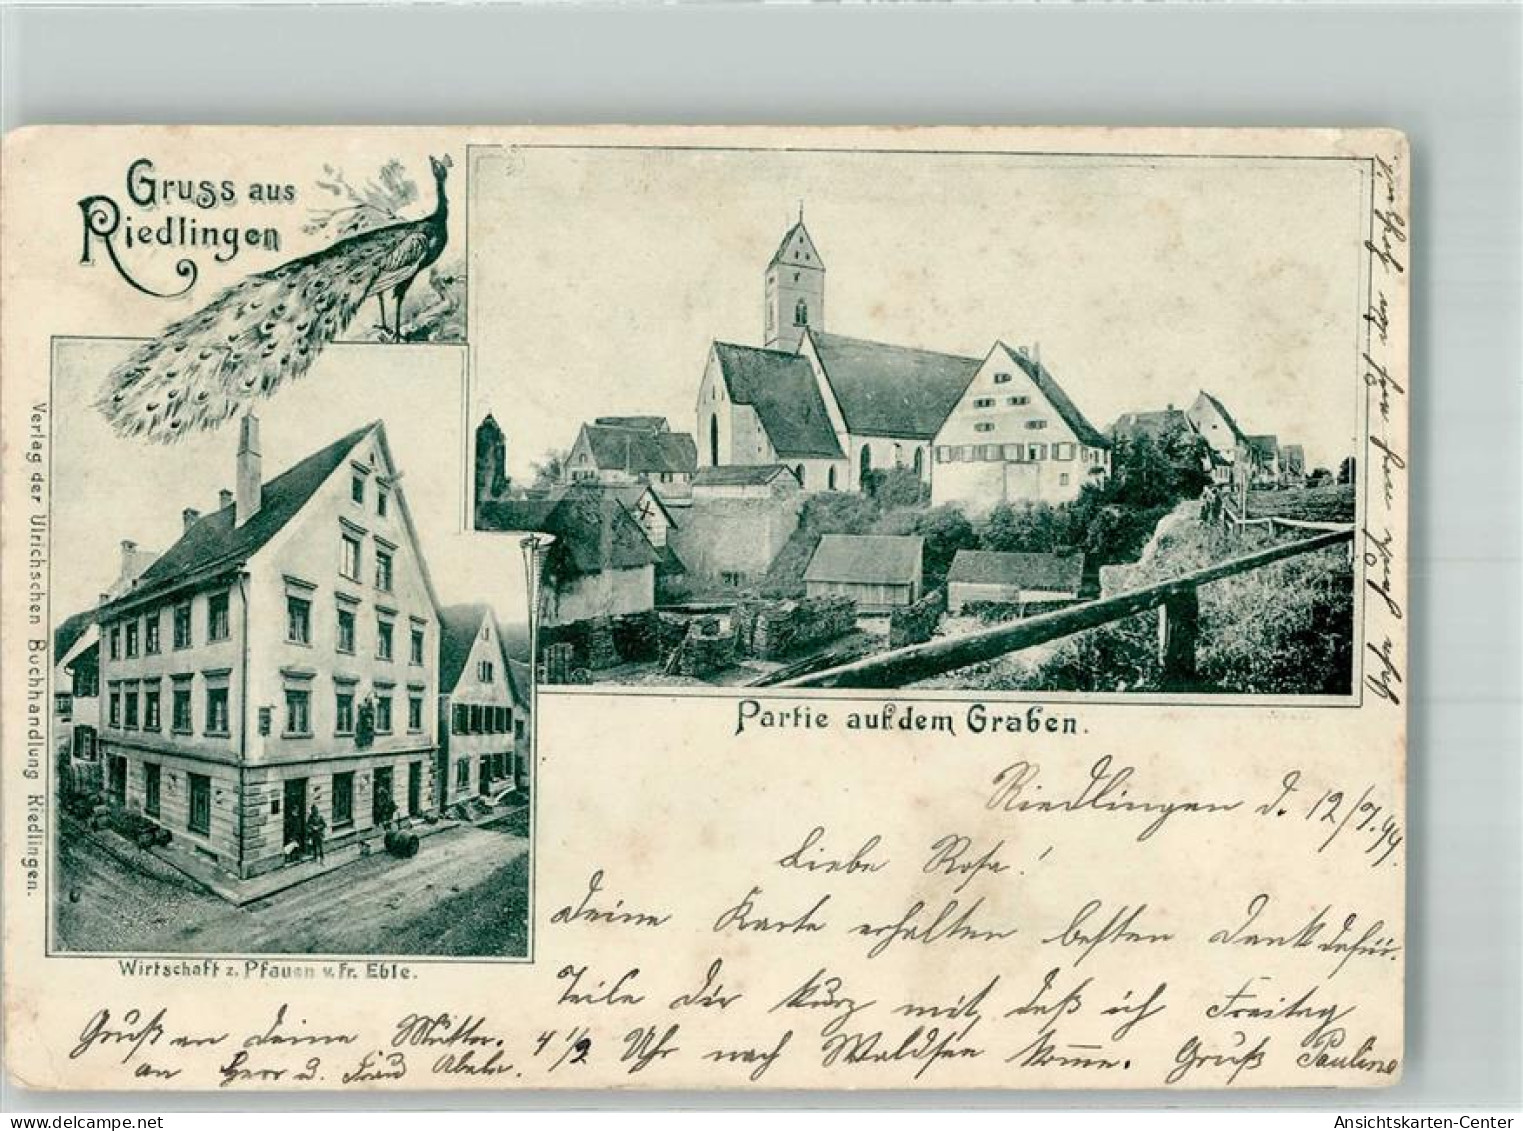 Gruss aus
Riedlingen
Partie auf dem Graben.
Wirtschaft z. Pfauen v. Fr. Eble.
Verlag der Ulrichschen Buchhandlung Riedlingen.
Riedlingen d. 12/7.99.
Liebe Rosa!
Deine Karte erhalten besten Dank dafür.
Teile Dir kurz mit, daß ich Freitag
4 1/2 Uhr nach Waldsee komme. Gruß Pauline
Gruß an Deine Mutter.
an Herr u. Frau Abele.
Ansichtskarten-Center